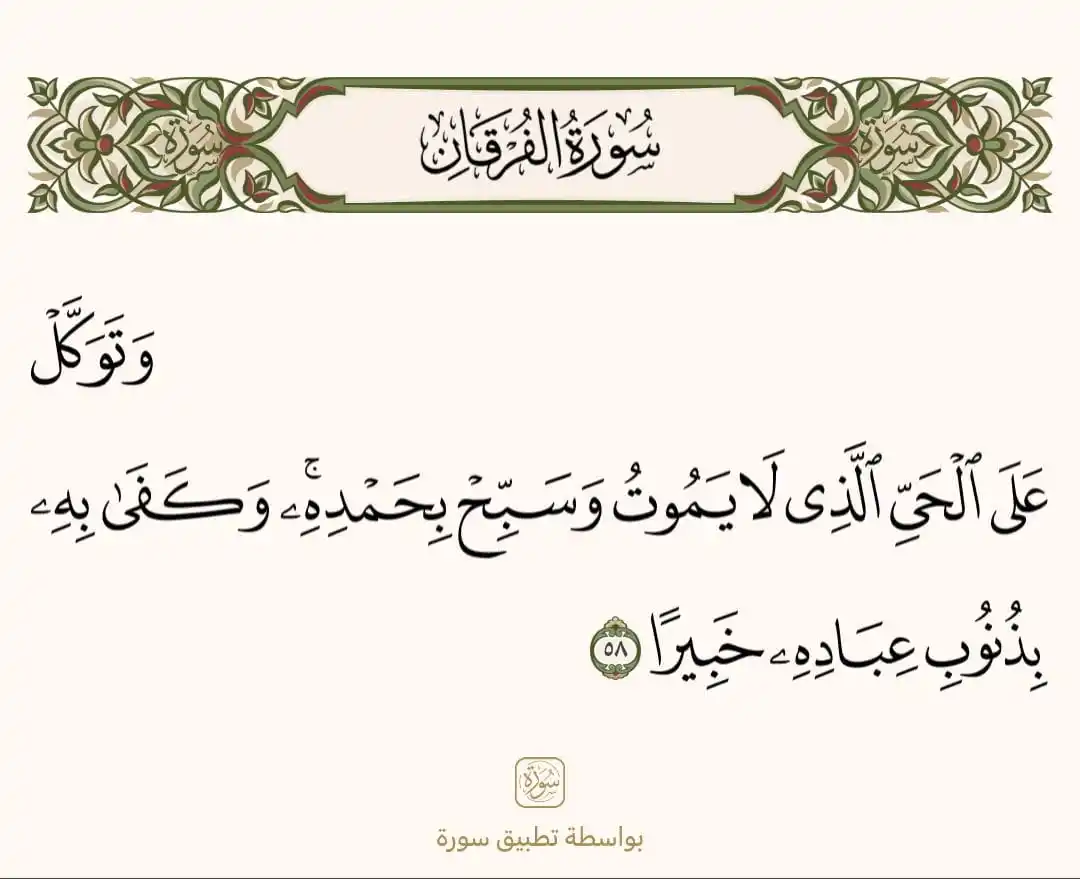 سُورَةُ الفُرۡقَانِ
سُورَة
سُورَة
وَتَوَكَّلۡ
عَلَى ٱلۡحَيِّ ٱلَّذِى لَا يَمُوتُ وَسَبِّحۡ بِحَمۡدِهِۦۚ وَكَفَىٰ بِهِۦ
بِذُنُوبِ عِبَادِهِۦ خَبِيرًا ٥٨
سُورَة
بواسطة تطبيق سورة